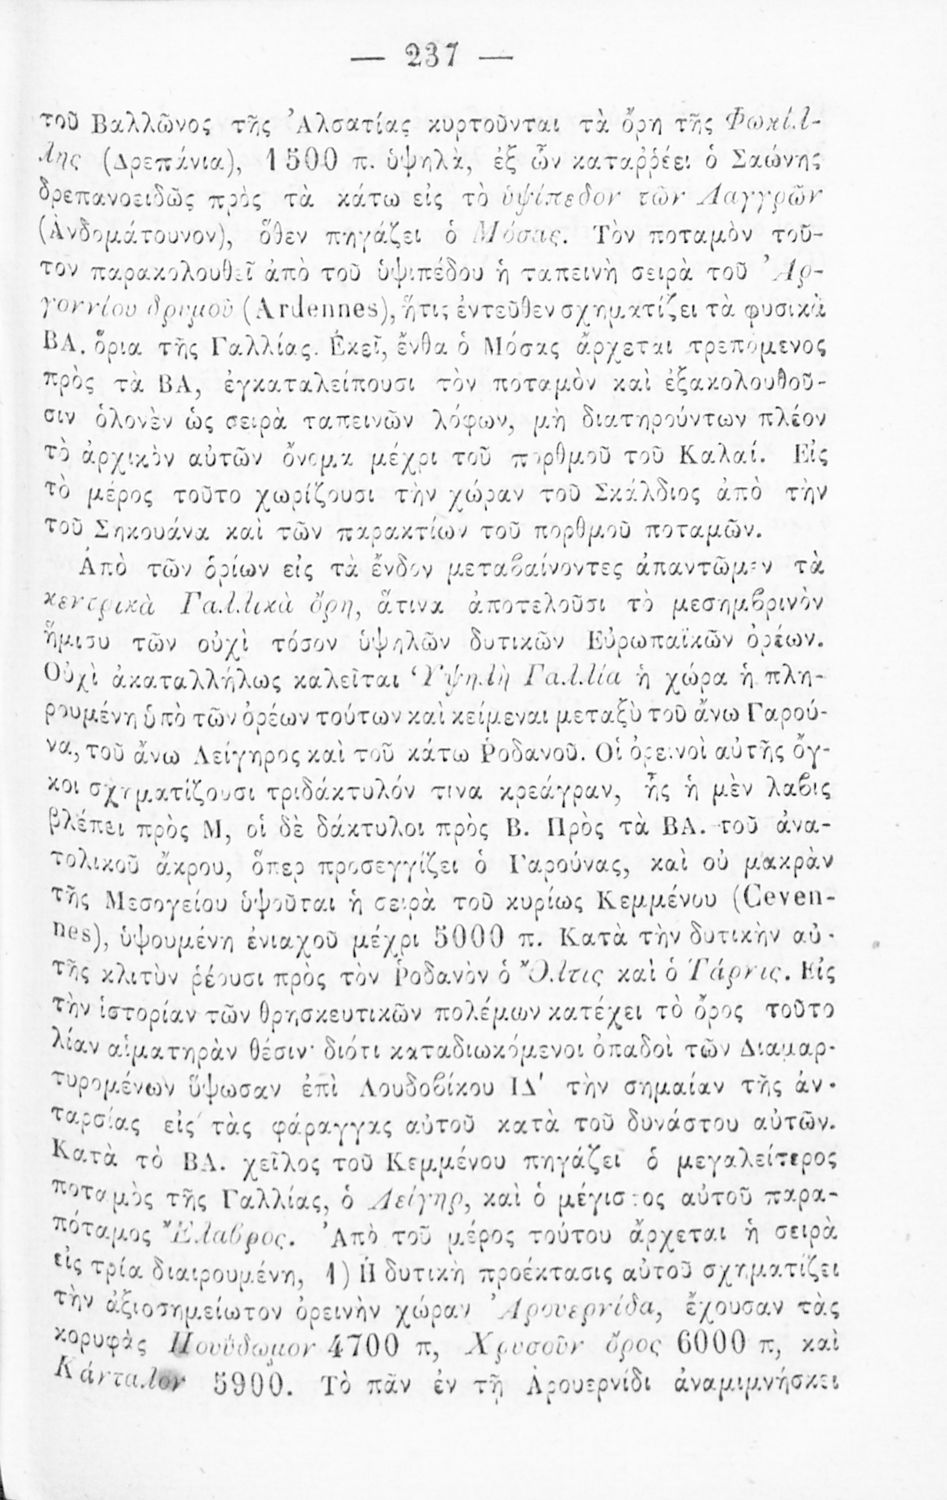 — 237 —
τοῦ Βαλλῶνος τῆς Ἀλσατίας κυρτοῦνται τὰ ὄρη τῆς Φωκίλ-
λης (Δρεπάνια), 1500 π. ὑψηλὰ, ἐξ ὧν καταῤῥέει ὁ Σαώνης
δρεπανοειδῶς πρὸς τὰ κάτω εἰς τὸ ὑψίπεδον τῶν Λαγγρῶν
(Ἀνδομάτουνον), ὅθεν πηγάζει ὁ Μόσας. Τὸν ποταμὸν τοῦ-
τον παρακολουθεῖ ἀπὸ τοῦ ὑψιπέδου ἡ ταπεινὴ σειρὰ τοῦ Ἀρ-
γοννίου δρυμοῦ (Ardennes), ἥτις ἐντεῦθεν σχηματίζει τὰ φυσικὰ
ΒΑ. ὅρια τῆς Γαλλίας. Ἐκεῖ, ἔνθα ὁ Μόσας ἄρχεται τρεπόμενος
πρὸς τὰ ΒΑ, ἐγκαταλείπουσι τὸν ποταμὸν καὶ ἐξακολουθοῦ-
σιν ὁλονὲν ὡς σειρὰ ταπεινῶν λόφων, μὴ διατηρούντων πλέον
τὸ ἀρχικὸν αὐτῶν ὄνομα μέχρι τοῦ πορθμοῦ τοῦ Καλαί. Εἰς
τὸ μέρος τοῦτο χωρίζουσι τὴν χώραν τοῦ Σκάλδιος ἀπὸ τὴν
τοῦ Σηκουάνα καὶ τῶν παρακτίων τοῦ πορθμοῦ ποταμῶν.
Ἀπὸ τῶν ὁρίων εἰς τὰ ἔνδον μεταβαίνοντες ἀπαντῶμεν τὰ
κεντρικὰ Γαλλικὰ ὄρη, ἅτινα ἀποτελοῦσι τὸ μεσημβρινὸν
ἥμισυ τῶν οὐχὶ τόσον ὑψηλῶν δυτικῶν Εὐρωπαϊκῶν ὀρέων.
Οὐχὶ ἀκαταλλήλως καλεῖται Ὑψηλὴ Γαλλία ἡ χώρα ἡ πλη-
ρουμένη ὑπὸ τῶν ὀρέων τούτων καὶ κείμεναι μεταξὺ τοῦ ἄνω Γαρού-
να, τοῦ ἄνω Λείγηρος καὶ τοῦ κάτω Ῥοδανοῦ. Οἱ ὀρεινοὶ αὐτῆς ὄγ-
κοι σχηματίζουσι τριδάκτυλόν τινα κρεάγραν, ἧς ἡ μὲν λαβὶς
βλέπει πρὸς Μ, οἱ δὲ δάκτυλοι πρὸς Β. Πρὸς τὰ ΒΑ. τοῦ ἀνα-
τολικοῦ ἄκρου, ὅπερ προσεγγίζει ὁ Γαρούνας, καὶ οὐ μακρὰν
τῆς Μεσογείου ὑψοῦται ἡ σειρὰ τοῦ κυρίως Κεμμένου (Ceven-
nes), ὑψουμένη ἐνιαχοῦ μέχρι 5000 π. Κατὰ τὴν δυτικὴν αὐ-
τῆς κλιτὺν ῥέουσι πρὸς τὸν Ῥοδανὸν ὁ Ὄλτις καὶ ὁ Τάρνις. Εἰς
τὴν ἱστορίαν τῶν θρησκευτικῶν πολέμων κατέχει τὸ ὄρος τοῦτο
λίαν αἱματηρὰν θέσιν· διότι καταδιωκόμενοι ὀπαδοὶ τῶν Διαμαρ-
τυρομένων ὕψωσαν ἐπὶ Λουδοβίκου ΙΔ' τὴν σημαίαν τῆς ἀν-
ταρσίας εἰς τὰς φάραγγας αὐτοῦ κατὰ τοῦ δυνάστου αὐτῶν.
Κατὰ τὸ ΒΑ. χεῖλος τοῦ Κεμμένου πηγάζει ὁ μεγαλείτερος
ποταμὸς τῆς Γαλλίας, ὁ Λείγηρ, καὶ ὁ μέγιστος αὐτοῦ παρα-
πόταμος Ἔλαβρος. Ἀπὸ τοῦ μέρος τούτου ἄρχεται ἡ σειρὰ
εἰς τρία διαιρουμένη, 1) Ἡ δυτικὴ προέκτασις αὐτοῦ σχηματίζει
τὴν ἀξιοσημείωτον ὀρεινὴν χώραν Ἀρουερνίδα, ἔχουσαν τὰς
κορυφὰς Πουΰδωμον 4700 π, Χρυσοῦν ὄρος 6000 π, καὶ
Κάνταλον 5900. Τὸ πᾶν ἐν τῇ Ἀρουερνίδι ἀναμιμνήσκει